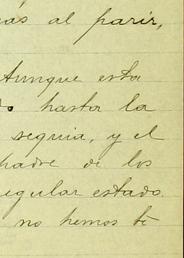 ás al parir,
Aunque esta
o hasta la
seguia, y el
padre de los
egular estado.
no hemos te